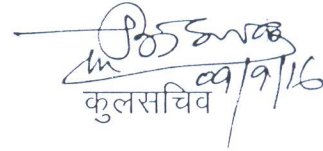 09/9/16
कुलसचिव